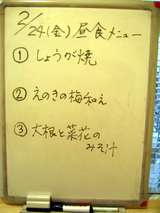 2/24(金)昼食メニュー
① しょうが焼
② えのきの梅和え
③ 大根と菜花の
みそ汁